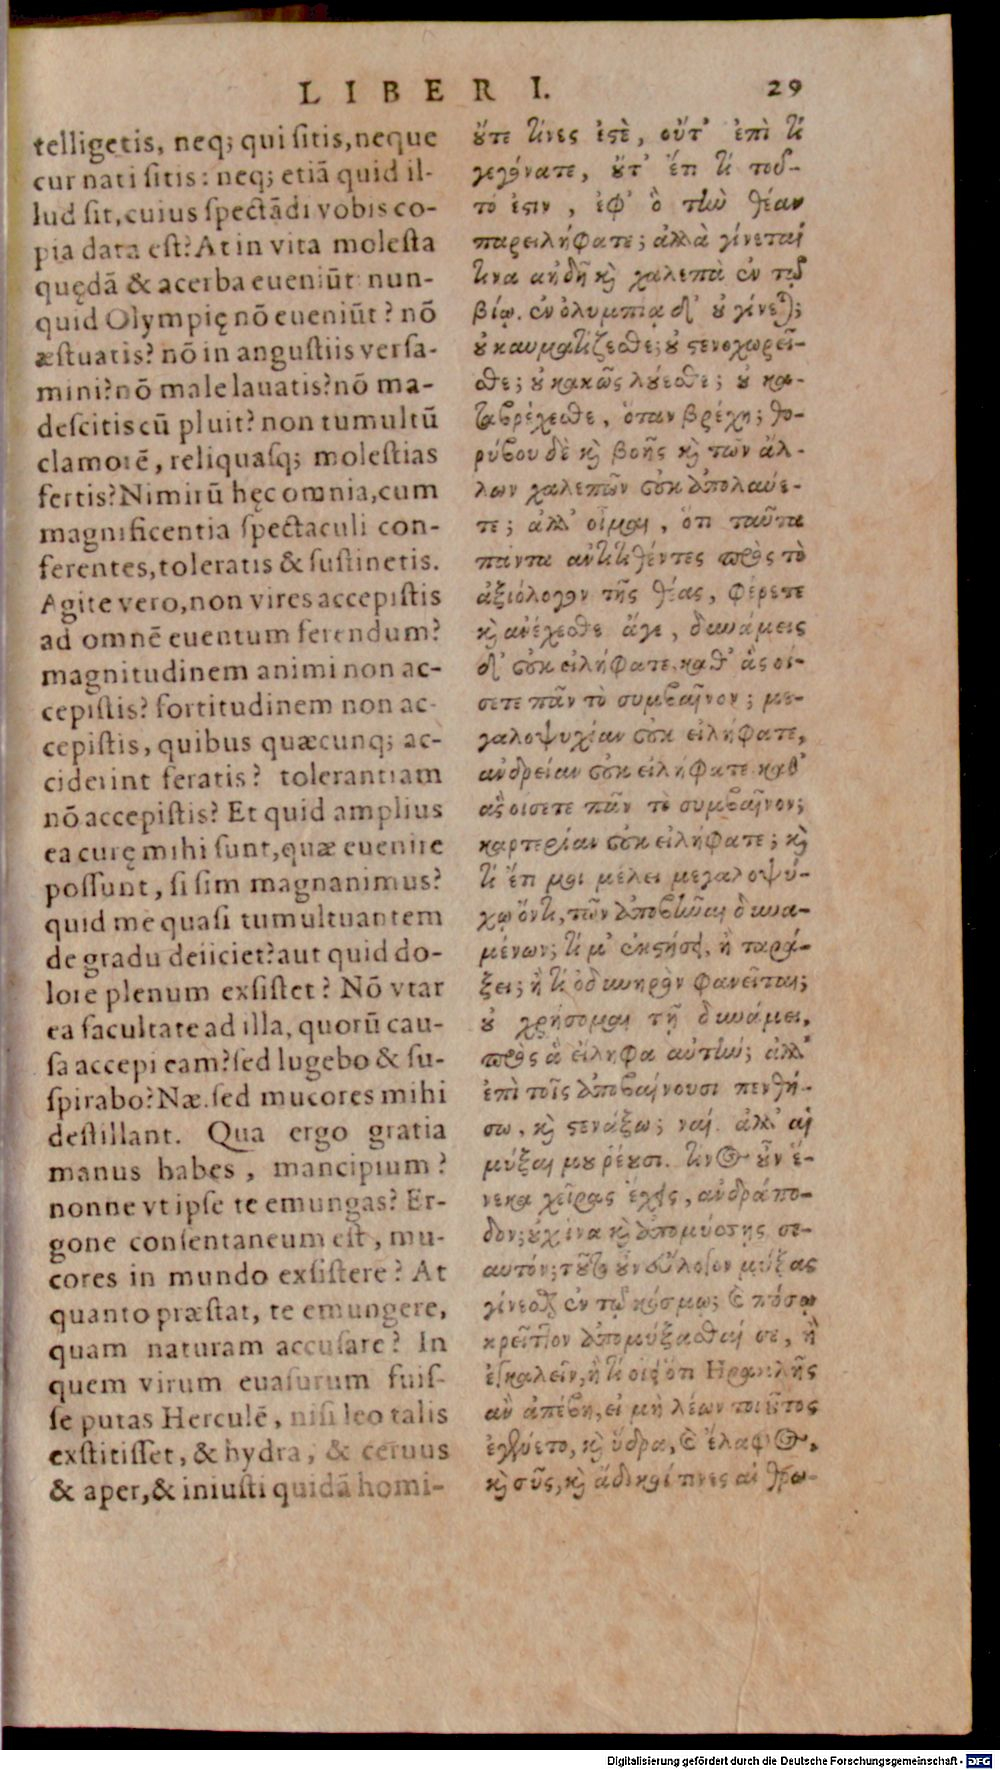 LIBER I. 29
telligetis, neq; qui ſitis, neque
cur nati ſitis: neq; etiā quid il-
lud ſit, cuius ſpectādi vobis co-
pia data eſt? At in vita moleſta
quędā & acerba eueniūt: nun-
quid Olympię nō eueniūt? nō
æſtuatis? nō in anguſtiis verſa-
mini? nō male lauatis? nō ma-
deſcitis cū pluit? non tumultū
clamorē, reliquaſq; moleſtias
fertis? Nimirū hęc omnia, cum
magnificentia ſpectaculi con-
ferentes, toleratis & ſuſtinetis.
Agite vero, non vires accepiſtis
ad omnē euentum ferendum?
magnitudinem animi non ac-
cepiſtis? fortitudinem non ac-
cepiſtis, quibus quæcunq; ac-
ciderint feratis? tolerantiam
nō accepiſtis? Et quid amplius
ea curę mihi ſunt, quæ euenire
poſſunt, ſi ſim magnanimus?
quid me quaſi tumultuantem
de gradu deiiciet? aut quid do-
lore plenum exſiſtet? Nō vtar
ea facultate ad illa, quorū cau-
ſa accepi eam? ſed lugebo & ſu-
ſpirabo? Næ. ſed mucores mihi
deſtillant. Qua ergo gratia
manus habes, mancipium?
nonne vt ipſe te emungas? Er-
gone conſentaneum eſt, mu-
cores in mundo exſiſtere? At
quanto præſtat, te emungere,
quam naturam accuſare? In
quem virum euaſurum fuiſ-
ſe putas Herculē, niſi leo talis
exſtitiſſet, & hydra, & ceruus
& aper, & iniuſti quidā homi-
ὔτε τίνες ἐστὲ, οὔτ' ἐπὶ τί
γεγόνατε, ὔτ' ἔτι τί τοῦ-
τό ἐστιν, ἐφ' ὃ τὴν θέαν
παρειλήφατε; ἀλλὰ γίνεται
τινα ἀηδῆ κὶ χαλεπὰ ἐν τῷ
βίῳ. ἐν ὀλυμπίᾳ δ' ὐ γίνεται;
ὐ καυματίζεσθε; ὐ στενοχωρεῖ-
σθε; ὐ κακῶς λούεσθε; ὐ κα-
ταβρέχεσθε, ὅταν βρέχῃ; θο-
ρύβου δὲ κὶ βοῆς κὶ τῶν ἀλ-
λων χαλεπῶν οὐκ ἀπολαύε-
τε; ἀλλ' οἶμαι, ὅτι ταῦτα
πάντα ἀντιτιθέντες πρὸς τὸ
ἀξιόλογον τῆς θέας, φέρετε
κὶ ἀνέχεσθε ἄγε, δυνάμεις
δ' οὐκ εἰλήφατε, καθ' ἃς οἴ-
σετε πᾶν τὸ συμβαῖνον; με-
γαλοψυχίαν οὐκ εἰλήφατε,
ἀνδρείαν οὐκ εἰλήφατε καθ'
ἃς οἴσετε πᾶν τὸ συμβαῖνον;
καρτερίαν οὐκ εἰλήφατε; κὶ
τί ἔτι μοι μέλει μεγαλοψύ-
χῳ ὄντι, τῶν ἀποβῆναι δυνα-
μένων; τί μ' ἐκστήσει, ἢ ταρά-
ξει; ἢ τί ὀδυνηρὸν φανεῖται;
ὐ χρήσομαι τῇ δυνάμει,
πρὸς ἃ εἴληφα αὐτήν; ἀλλ'
ἐπὶ τοῖς ἀποβαίνουσι πενθή-
σω, κὶ στενάξω; ναί. ἀλλ' αἱ
μύξαι μου ῥέουσι. τίνος ὖν ἕ-
νεκα χεῖρας ἔχεις, ἀνδράπο-
δον; ὐχ ἵνα κὶ ἀπομύσσῃς σε-
αυτόν; τοῦτο ὖν εὔλογον μύξας
γίνεσθαι ἐν τῷ κόσμῳ; καὶ πόσῳ
κρεῖττον ἀπομύξασθαί σε, ἢ
ἐγκαλεῖν, ἢ τί οἴει ὅτι Ηρακλῆς
ἂν ἀπέβη, εἰ μὴ λέων τοιοῦτος
ἐγένετο, κὶ ὕδρα, καὶ ἔλαφος,
κὶ σῦς, κὶ ἄδικοί τινες αἱ θρω-
Digitalisierung gefördert durch die Deutsche Forschungsgemeinschaft - DFG